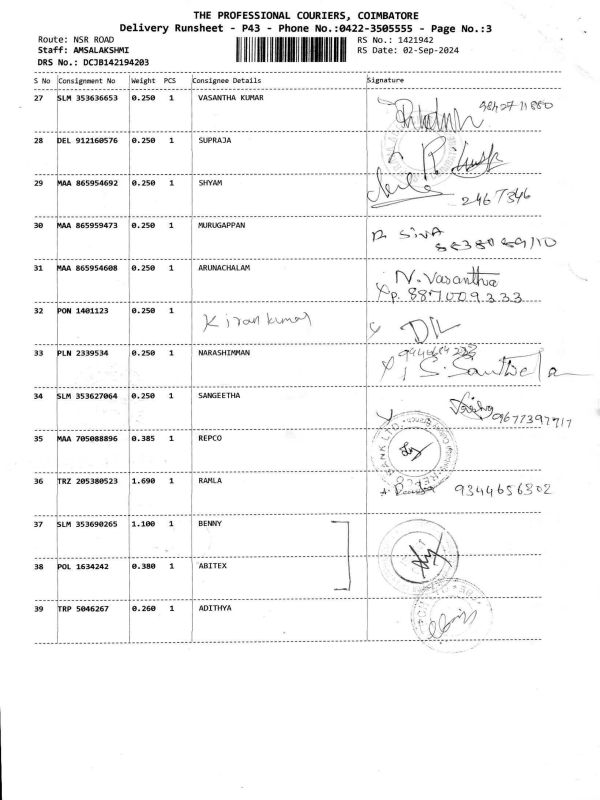 THE PROFESSIONAL COURIERS, COIMBATORE
Delivery Runsheet - P43 - Phone No.:0422-3505555 - Page No.:3
Route: NSR ROAD RS No.: 1421942
Staff: AMSALAKSHMI RS Date: 02-Sep-2024
DRS No.: DCJB142194203
S No Consignment No Weight PCS Consignee Details Signature
27 SLM 353636653 0.250 1 VASANTHA KUMAR
28 DEL 912160576 0.250 1 SUPRAJA
29 MAA 865954692 0.250 1 SHYAM
2467346
30 MAA 865959473 0.250 1 MURUGAPPAN
R SIVA
31 MAA 865954608 0.250 1 ARUNACHALAM N. Vasantha
p. 887009333
32 PON 1401123 0.250 1 Kiran kumar
33 PLN 2339534 0.250 1 NARASHIMMAN
34 SLM 353627064 0.250 1 SANGEETHA
9677397717
35 MAA 705088896 0.385 1 REPCO
36 TRZ 205380523 1.690 1 RAMLA 9344656302
37 SLM 353690265 1.100 1 BENNY
38 POL 1634242 0.380 1 ABITEX
39 TRP 5046267 0.260 1 ADITHYA